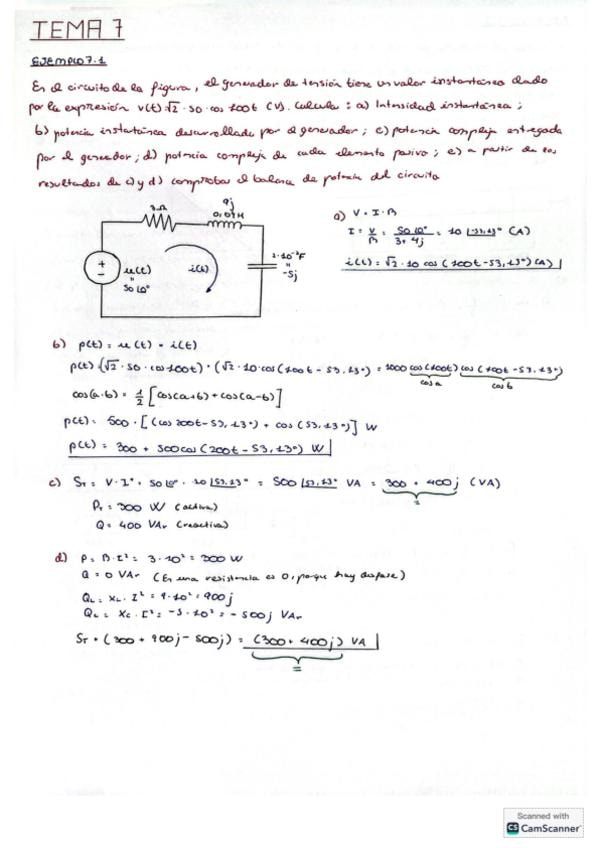 TEMA 7
EJEMPLO 7.1
En el circuito de la figura, el generador de tensión tiene un valor instantáneo dado
por la expresión v(t) √2 · 50 · cos 100t (V). Calcula: a) Intensidad instantánea;
b) potencia instantánea desarrollada por el generador; c) potencia compleja entregada
por el generador; d) potencia compleja de cada elemento pasivo; e) a partir de los
resultados de c) y d) comprobar el balance de potencia del circuito
3Ω
9j
0,09H
2·10⁻³F
"
-5j
u(t)
"
50 |0°
i(t)
a) V = I · R
I = V/R = 50|0° / 3+4j = 10 |-53,13° (A)
i(t) = √2 · 10 cos (100t - 53,13°) (A)
b) p(t) = u(t) · i(t)
p(t) (√2 · 50 · cos 100t) · (√2 · 10 · cos (100t - 53,13°) = 1000 cos (100t) cos (100t - 53,13°)
cos a cos b
cos(a·b) = 1/2 [cos(a+b) + cos(a-b)]
p(t) = 500 · [(cos 200t - 53,13°) + cos (53,13°)] W
p(t) = 300 + 500 cos (200t - 53,13°) W
c) ST = V · I* = 50|0° · 10 |53,13° = 500 |53,13° VA = 300 + 400j (VA)
=
PT = 300 W (activa)
Q = 400 VAr (reactiva)
d) P = R · I² = 3 · 10² = 300 W
Q = 0 VAr (En una resistencia es 0, porque hay desfase)
QL = XL · I² = 9 · 10² = 900j
QC = XC · I² = -5 · 10² = -500j VAr
ST = (300 + 900j - 500j) = (300 + 400j) VA
=
Scanned with
CS CamScanner